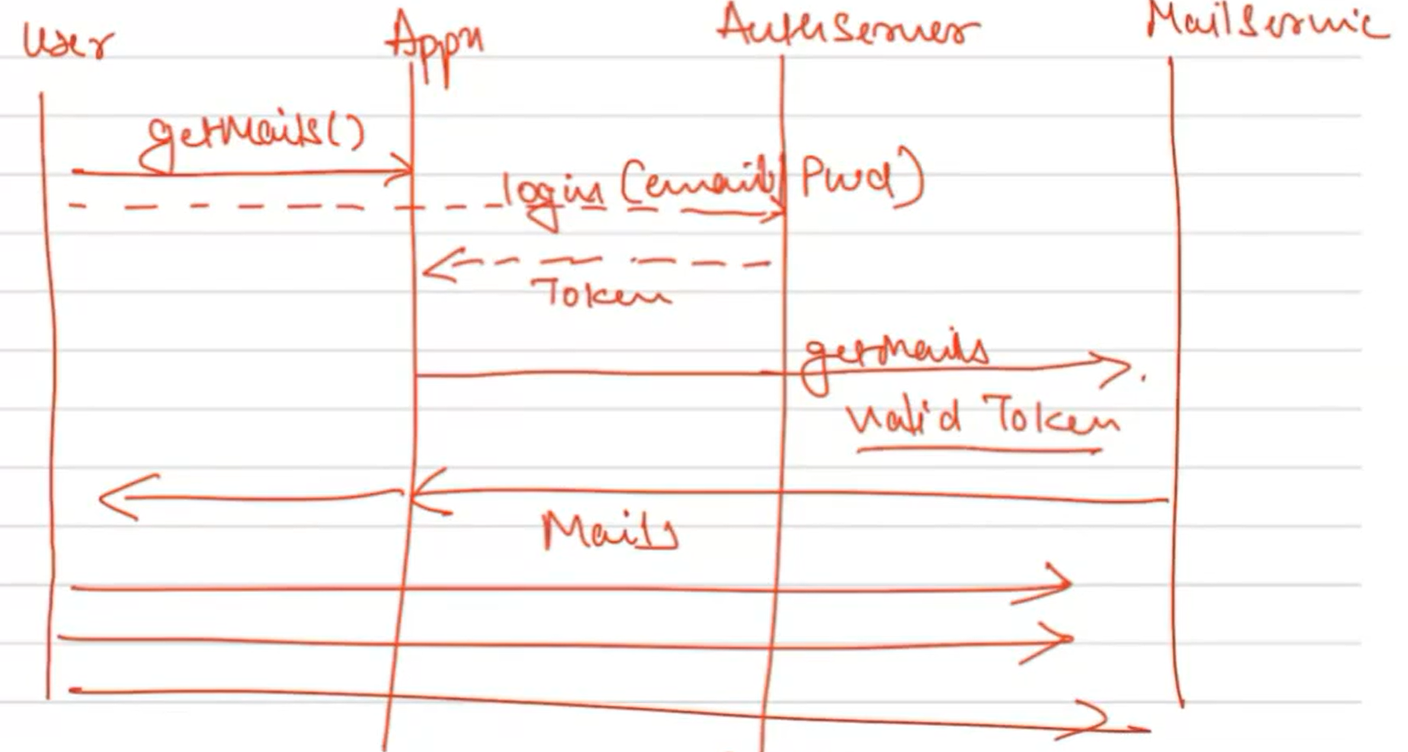 User Appn AuthServer MailServic
getMails()
login (email, Pwd)
Token
getMails
valid Token
Mails